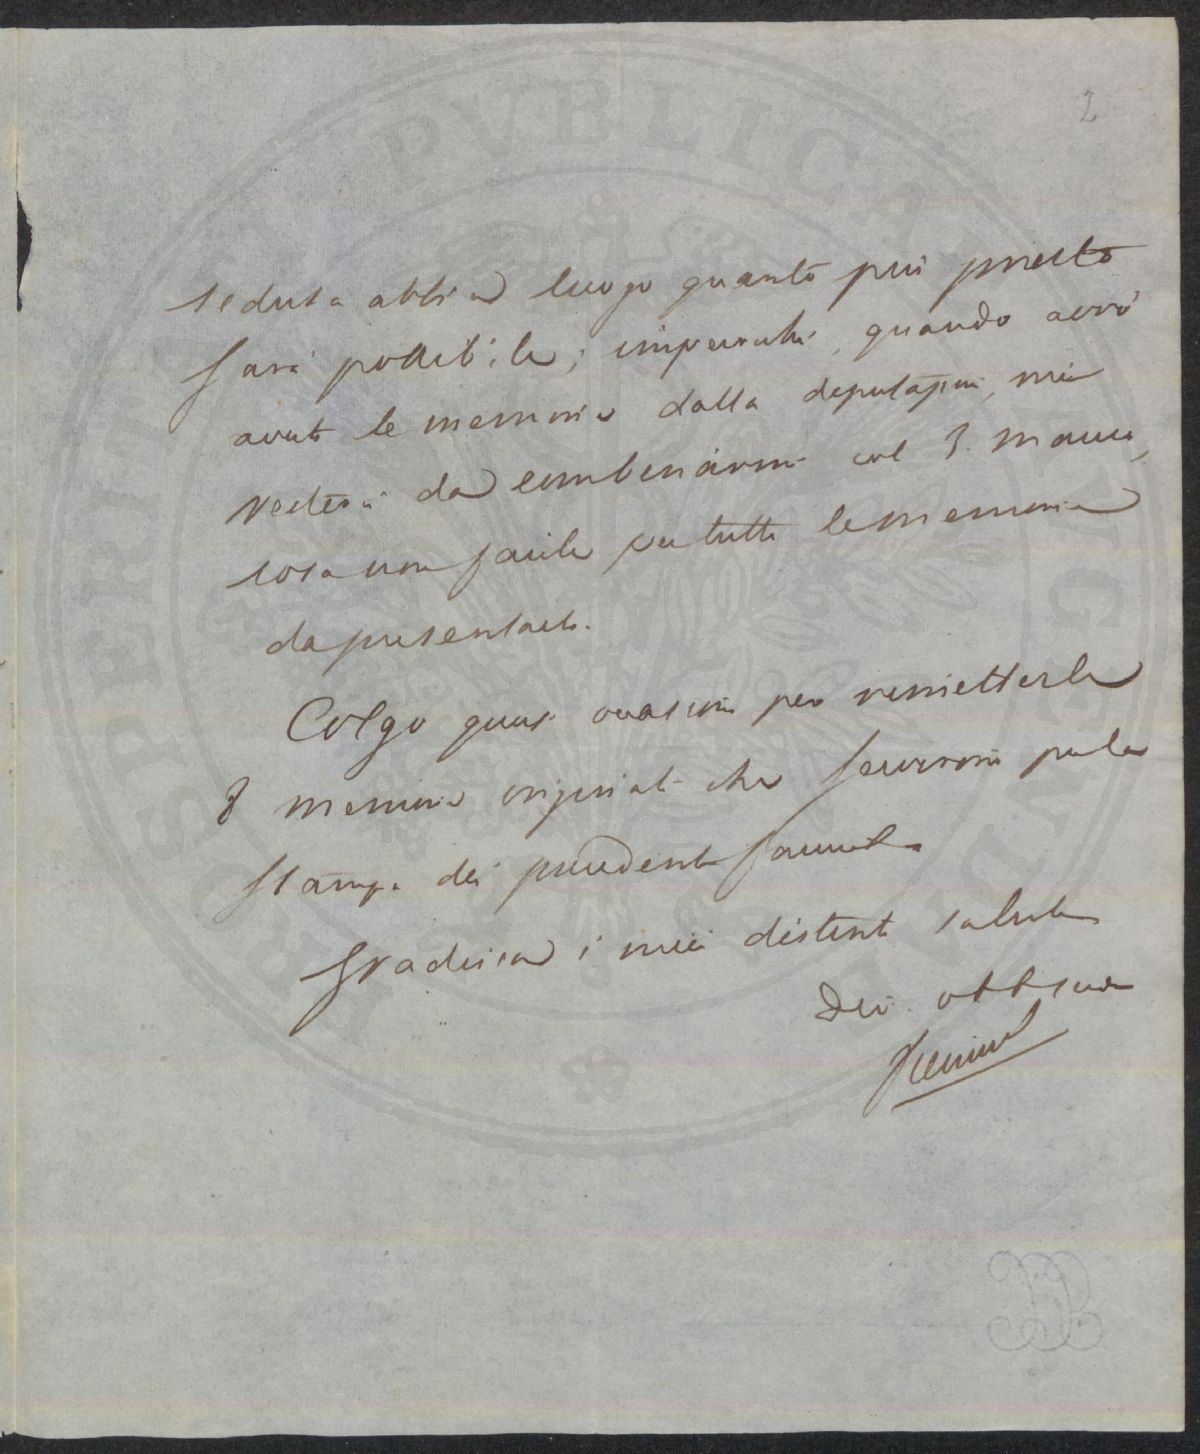 2
seduta abbia luogo quanto più presto
sarà possibile; imperochè, quando avrò
avute le memorie dalla deputazione, mi
resterà da combinarmi col S. Mauri,
cosa non facile per tutte le memorie
da presentarsi.
Colgo questa occasione per rimetterle
8 memorie originali che servirono per la
stampa dei precedenti
Gradisca i miei distinti saluti